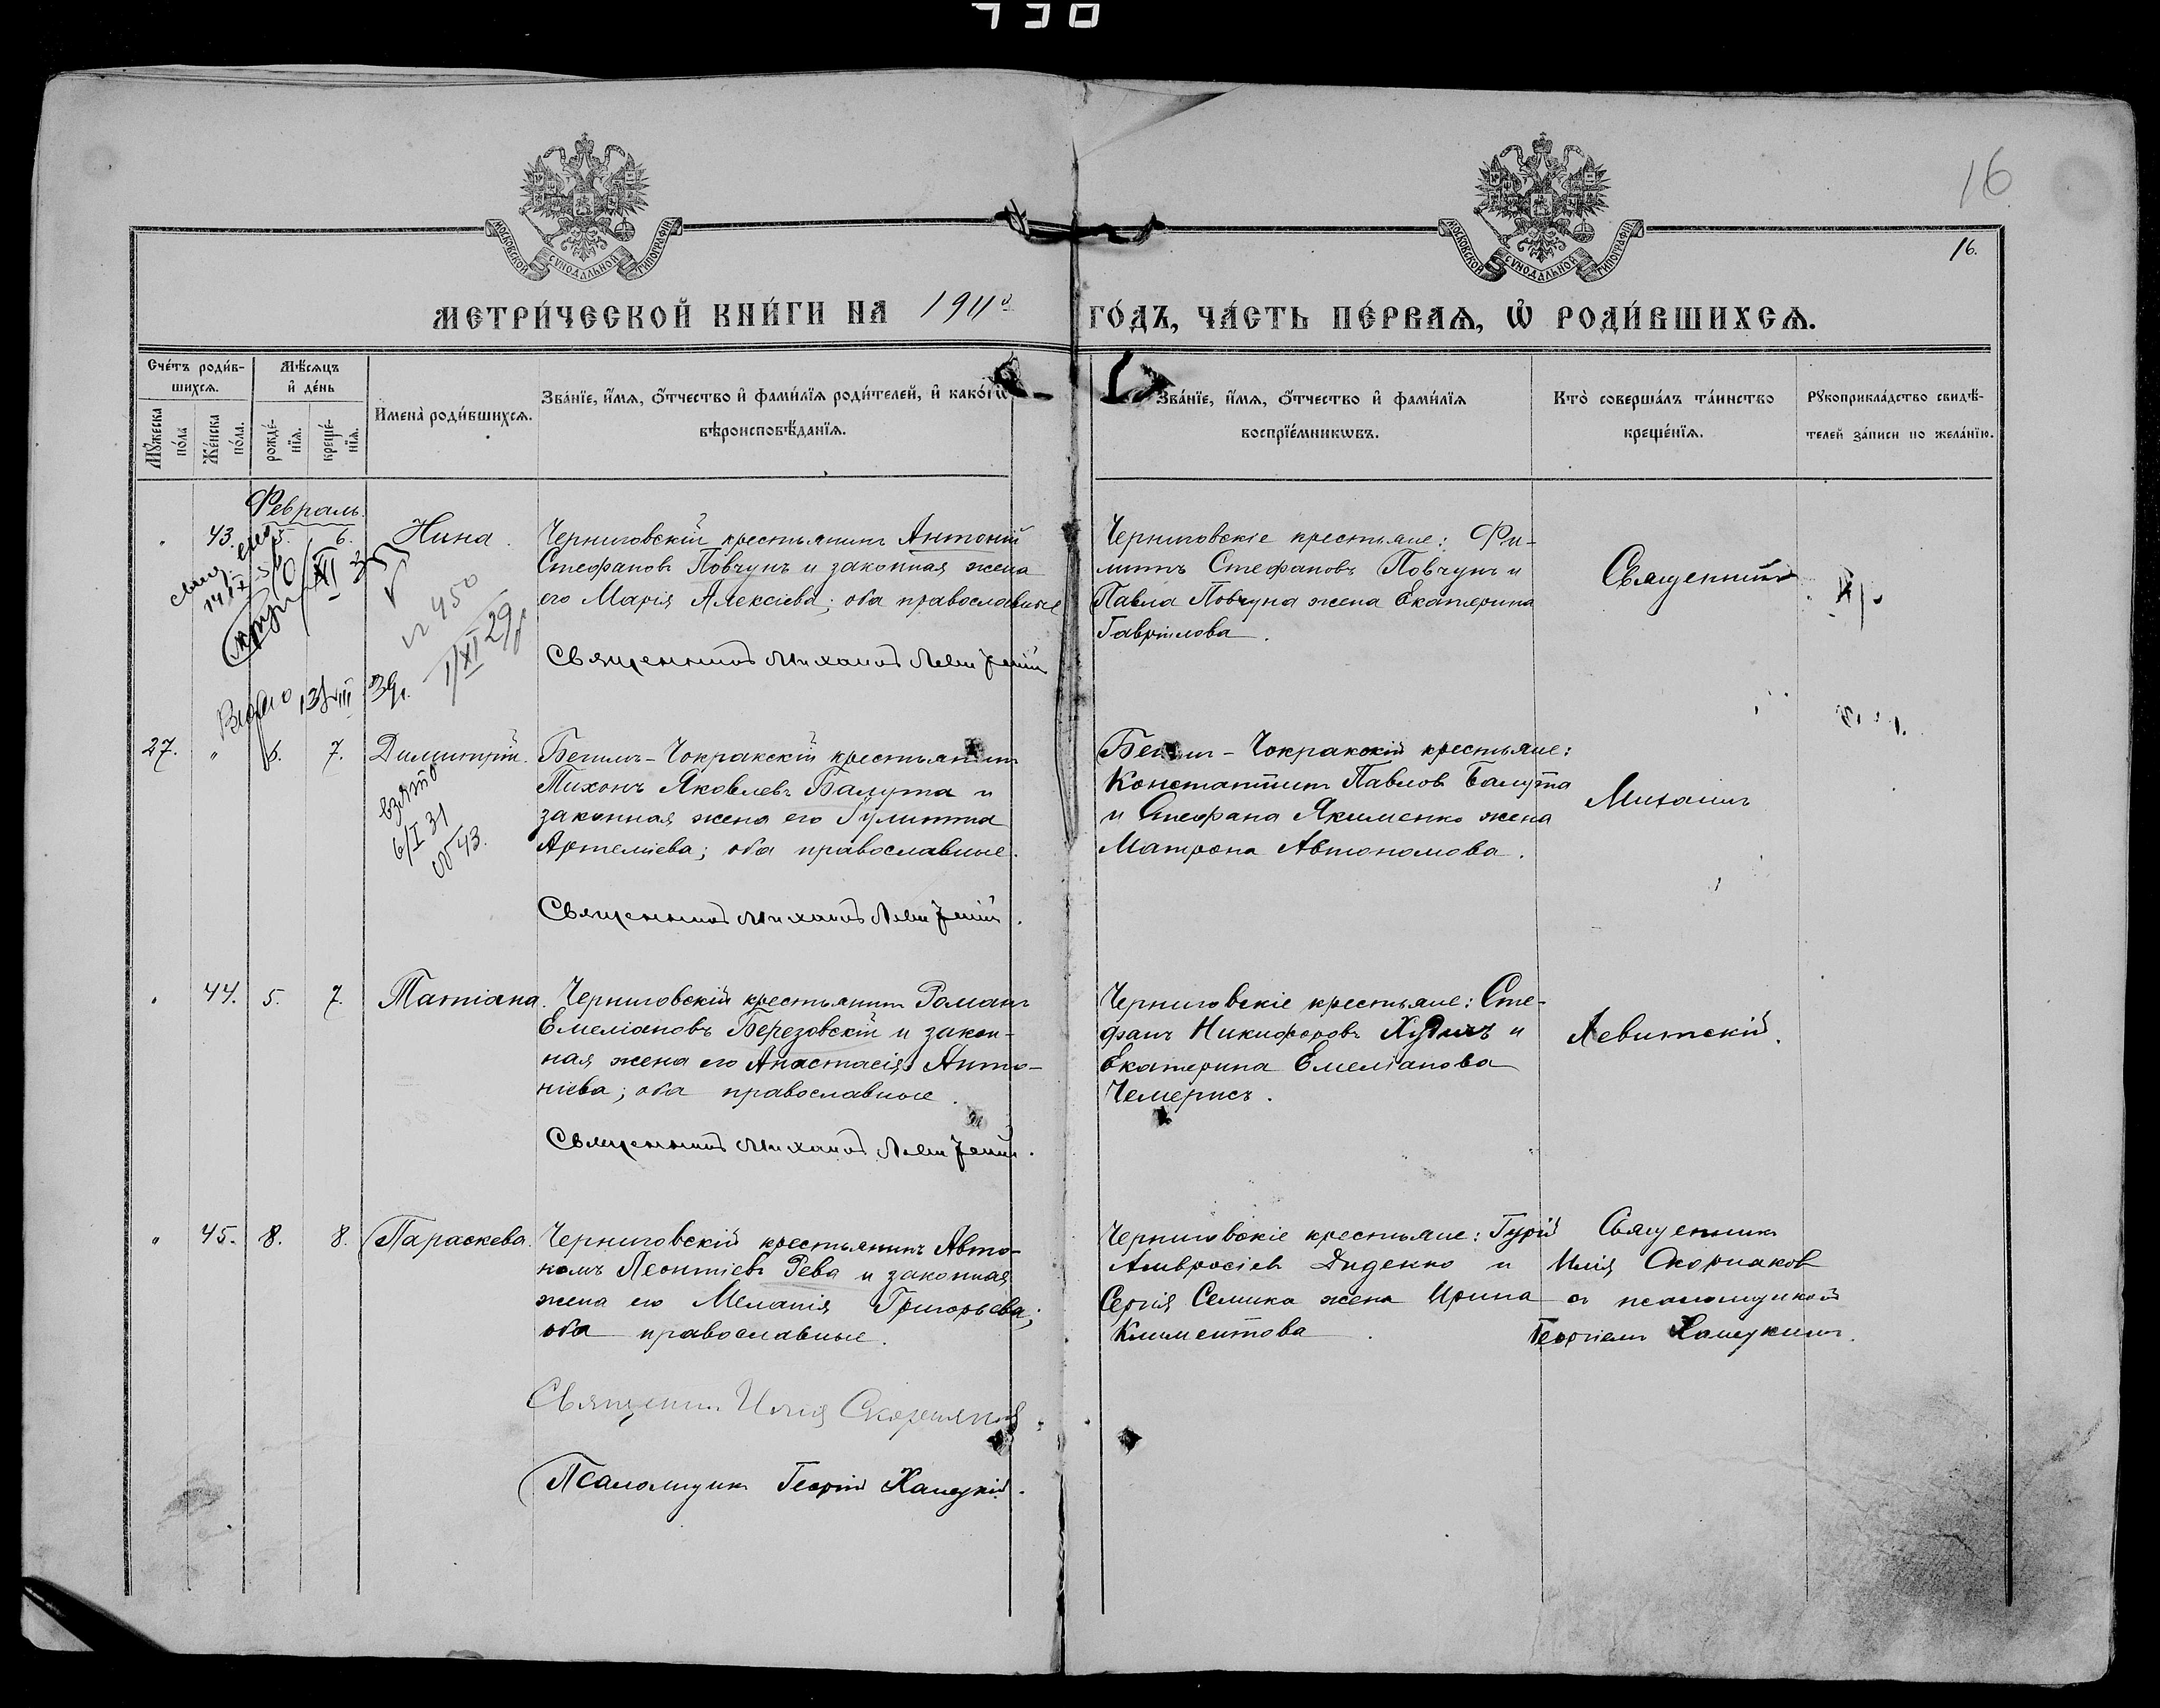 730
16
16.
МОСКОВСКОЙ СѴНОДАЛЬНОЙ ТИПОГРАФІИ
МОСКОВСКОЙ СѴНОДАЛЬНОЙ ТИПОГРАФІИ
МЕТРИ́ЧЕСКОЙ КНИ́ГИ НА 1911 ГО́ДЪ, ЧА́СТЬ ПЕ́РВАѦ, Ѡ҆ РОДИ́ВШИХСѦ.
Сче́тъ роди́в-
шихсѧ.
Мѣ́сѧцъ
и҆ де́нь
Мꙋ́жеска
по́ла
Же́нска
по́ла.
рожде́-
нїѧ.
креще́-
нїѧ.
Имена̀ роди́вшихсѧ.
Зва́нїе, и҆́мѧ, ѻ҆́тчество и҆ фами́лїѧ роди́телей, и҆ како́гѡ
вѣроисповѣ́данїѧ.
Зва́нїе, и҆́мѧ, ѻ҆́тчество и҆ фами́лїѧ
воспрїе́мникѡвъ.
Кто̀ соверша́лъ та́инство
креще́нїѧ.
Рꙋкоприкла́дство свидѣ́-
телей за́писи по жела́нїю.
Февраль.
" 43. 5. 6. Нина.
Черниговскій крестьянинъ Антоній
Стефановъ Повчунъ и законная жена
его Марія Алексіева; оба православные
Священникъ Михаилъ Левитскій
Черниговскіе крестьяне: Фи-
липпъ Стефановъ Повчунъ и
Павла Повчуна жена Екатерина
Гавріилова.
Священникъ
№ 450
1/XI 29г
Взято 13/VIII 39г.
27. " 6. 7. Димитрій.
взято
6/I 31
Бегимъ-Чокракскій крестьянинъ
Тихонъ Яковлевъ Балута и
законная жена его Гулитта
Артеміева; оба православные.
Священникъ Михаилъ Левитскій.
Бегим-Чокракскій крестьяне:
Константинъ Павловъ Балута
и Стефана Якименко жена
Матрона Автономова.
Михаилъ
" 44. 5. 7. Татіана.
Черниговскій крестьянинъ Романъ
Емеліановъ Березовскій и закон-
ная жена его Анастасія Анто-
ніева; оба православные.
Священникъ Михаилъ Левитскій.
Черниговскіе крестьяне: Сте-
фанъ Никифоровъ и
Екатерина Емеліанова
Чемерисъ.
Левитскій.
" 45. 8. 8. Параскева.
Черниговскій крестьянинъ Авто-
номъ Леонтіевъ Рева и законная
жена его Меланія Григорьева;
оба православные.
Священникъ Илія Скорняковъ.
Псаломщикъ Георгій Хамецкій.
Черниговскіе крестьяне: Гурій
Амвросіевъ Диденко и
Сергія Семика жена Ирина
Климентова.
Священникъ
Илія Скорняковъ
съ псаломщикомъ
Георгіемъ